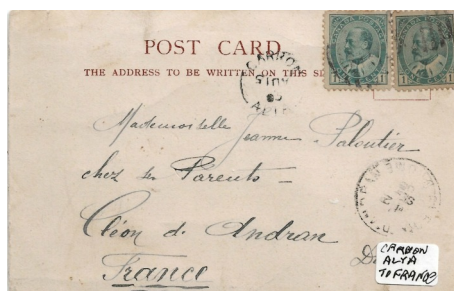 POST CARD
THE ADDRESS TO BE WRITTEN ON THIS
CANADA POSTAGE
CANADA POSTAGE
1 1
1 1
Mademoiselle Jeanne Paloutier
chez ses Parents
Cléon d. Andran
France
CARBON
ALTA
TO FRANCE